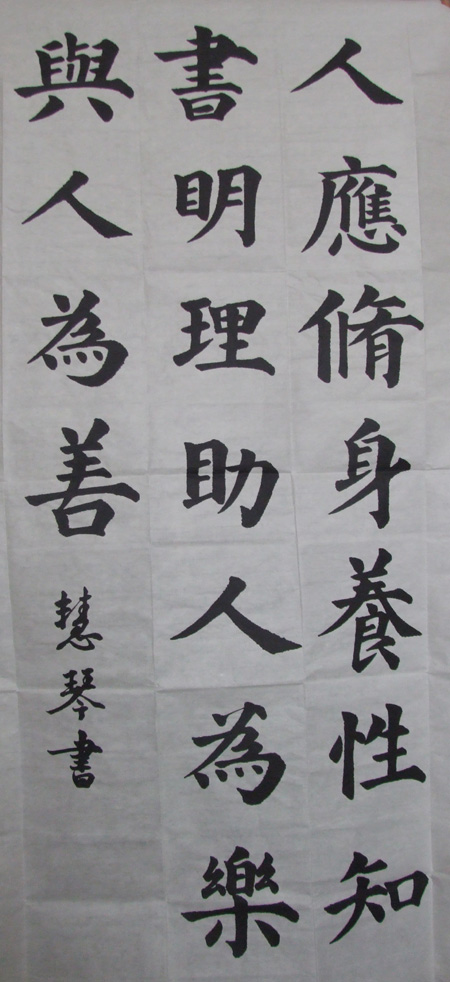 人應脩身養性知
書明理助人為樂
與人為善
慧琴書